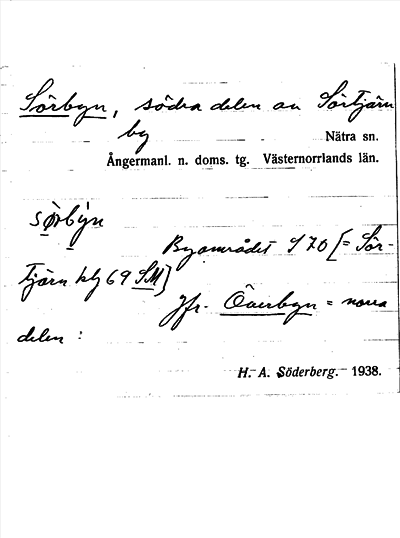 Sörbyn, södra delen av Sörtjärn
by
Nätra sn.
Ångermanl. n. doms. tg. Västernorrlands län.
sörbýn
Byområdet 970 [= Sör-
tjärn blj 69 SM]
Jfr. Överbyn = norra
delen :
H. A. Söderberg. 1938.